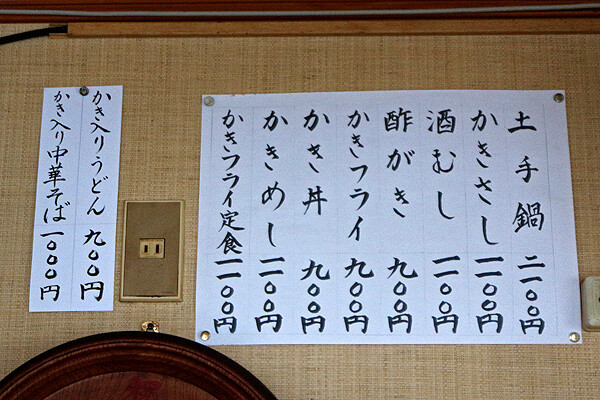 土手鍋 二一〇〇円
かきさし 一一〇〇円
酒むし 一一〇〇円
酢がき 九〇〇円
かきフライ 九〇〇円
かき丼 九〇〇円
かきめし 一一〇〇円
かきフライ定食 一一〇〇円
かき入りうどん 九〇〇円
かき入り中華そば 一〇〇〇円